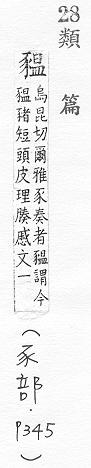 28
類篇
豱烏昆切爾雅豕奏者豱謂今
豱猪短頭皮理腠蹙文一
(豕部·P345)